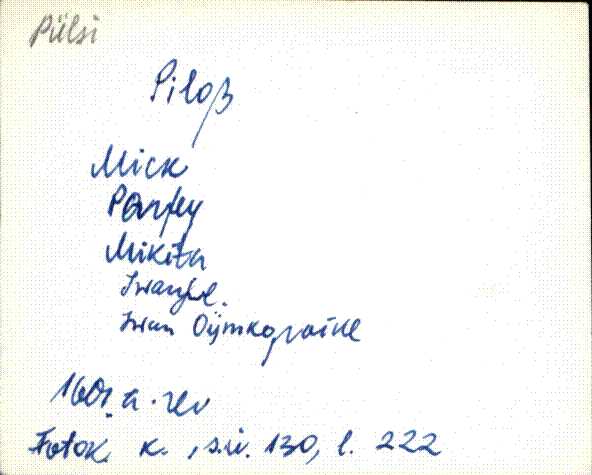 Pülsi
Piloß
Mick
Parfey
Mikita
Iwan
1601. a. rev
Fotok. k. , s.ü. 130, l. 222